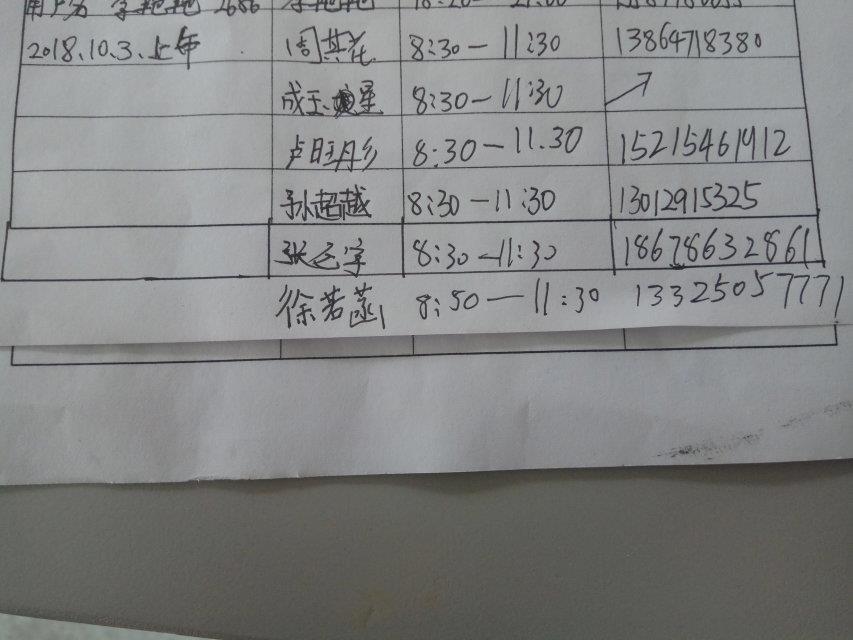 2018.10.3.上午 周其花 8:30-11:30 13864718380
成玉星 8:30-11:30
卢旺丹乡 8:30-11.30 15215461912
孙超越 8:30-11:30 13012915325
张 宇 8:30-11:30 18678632861
徐若菡 8:50-11:30 13325057771